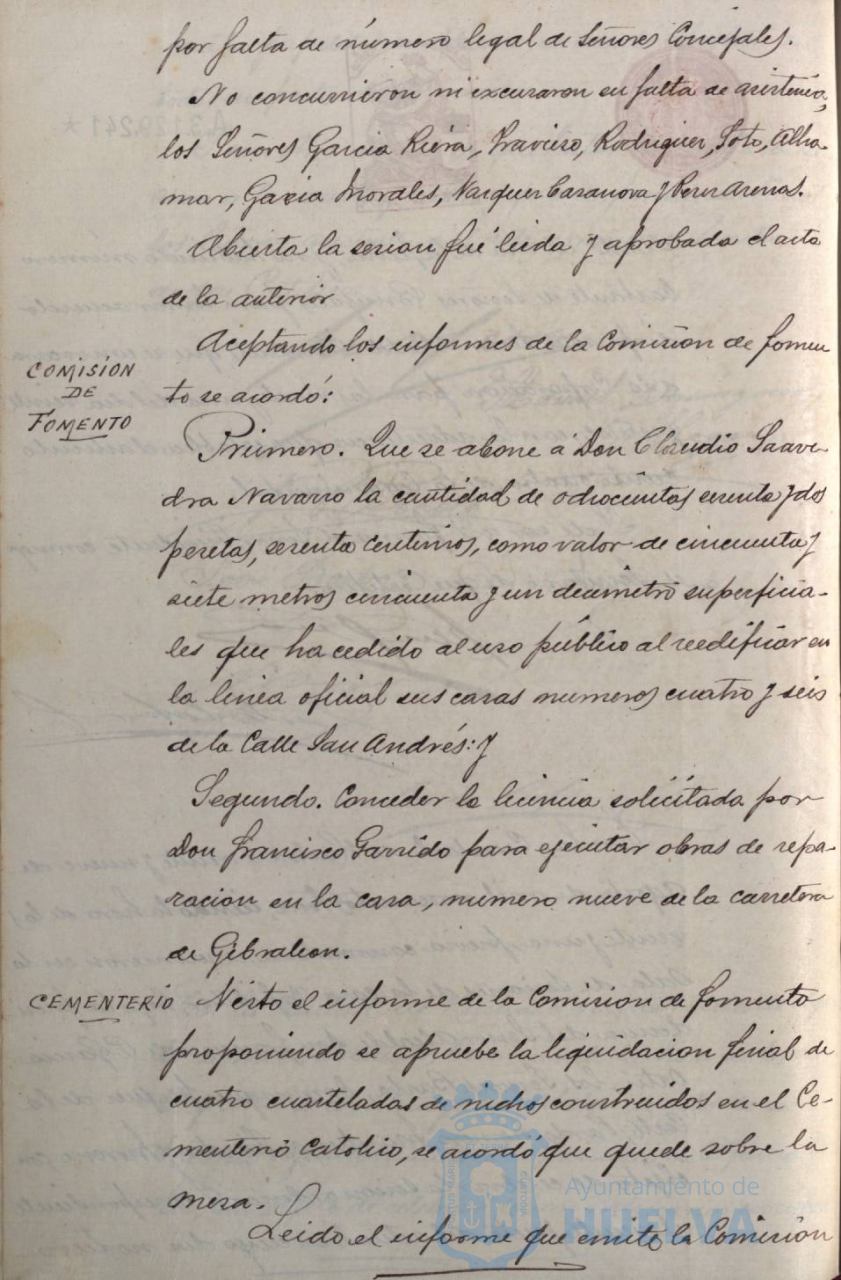 por falta de número legal de Señores Concejales.
No concurrieron ni excusaron su falta de asistencia,
los Señores Garcia Riera, Travieso, Rodriguez, Soto, Alha-
mar, Garcia Morales, Vazquez Casanova y Perez Arenas.
Abierta la sesion fué leida y aprobada el acta
de la anterior
COMISION
DE
FOMENTO
Aceptando los informes de la Comision de fomen
to se acordó:
Primero. Que se abone á Don Claudio Saave-
dra Navarro la cantidad de ochocientas sesenta y dos
pesetas, sesenta centimos, como valor de cincuenta y
siete metros cincuenta y un decimetro superficia-
les que ha cedido al uso público al reedificar en
la linea oficial sus casas numeros cuatro y seis
de la Calle San Andrés: y
Segundo. Conceder la licencia solicitada por
Don francisco Garrido para ejecutar obras de repa-
racion en la casa, numero nueve de la carretera
de Gibraleon.
CEMENTERIO
Visto el informe de la Comision de fomento
proponiendo se apruebe la liquidacion final de
cuatro cuarteladas de nichos construidos en el Ce-
menterio Catolico, se acordó que quede sobre la
mesa.
Leido el informe que emite la Comision
Ayuntamiento de
HUELVA